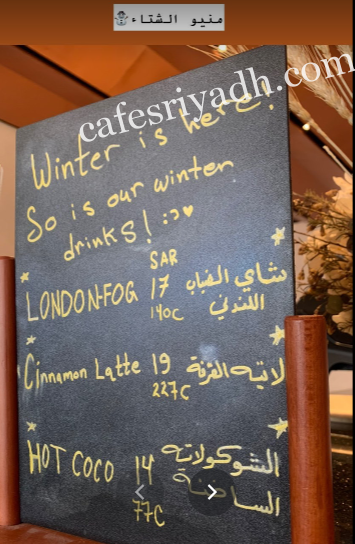 منيو الشتاء⛄
cafesriyadh.com
Winter is here!
So is our winter
drinks! :>♥
SAR
LONDON-FOG 17 شاي الضباب
140C اللندني
Cinnamon Latte 19 لاتيه القرفة
227C
HOT COCO 14 الشوكولاته
77C الساخنة